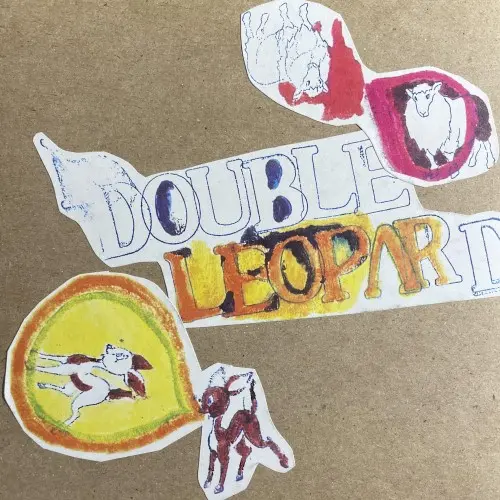 DOUBLE
LEOPARD